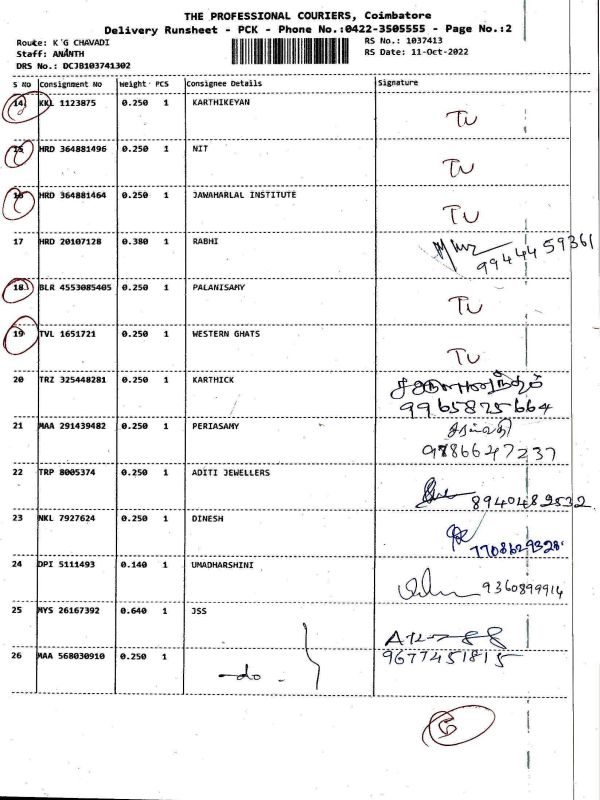 THE PROFESSIONAL COURIERS, Coimbatore
Delivery Runsheet - PCK - Phone No.:0422-3505555 - Page No.:2
Route: K G CHAVADI
RS No.: 1037413
Staff: ANANTH
RS Date: 11-Oct-2022
DRS No.: DCJB103741302
S No Consignment No Weight PCS Consignee Details Signature
14 KKL 1123875 0.250 1 KARTHIKEYAN
TU
15 HRD 364881496 0.250 1 NIT
TU
16 HRD 364881464 0.250 1 JAWAHARLAL INSTITUTE
TU
17 HRD 20107128 0.380 1 RABHI
9944459361
18 BLR 4553085405 0.250 1 PALANISAMY
TU
19 TVL 1651721 0.250 1 WESTERN GHATS
TU
20 TRZ 325448281 0.250 1 KARTHICK
9965825664
21 MAA 291439482 0.250 1 PERIASAMY
9786647237
22 TRP 8005374 0.250 1 ADITI JEWELLERS
8940489532
23 NKL 7927624 0.250 1 DINESH
24 DPI 5111493 0.140 1 UMADHARSHINI
9360899914
25 MYS 26167392 0.640 1 JSS
26 MAA 568030910 0.250 1
9677451815
-do-
6